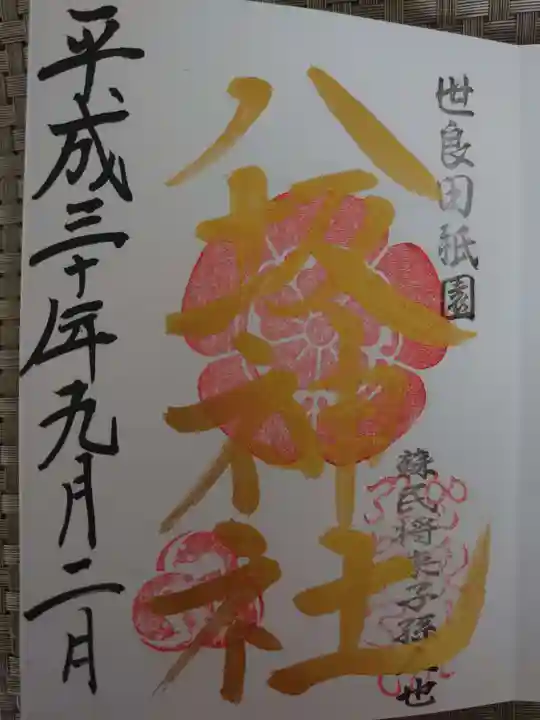 世良田祇園
蘇民将来子孫人也
八坂神社
平成三十年九月二日